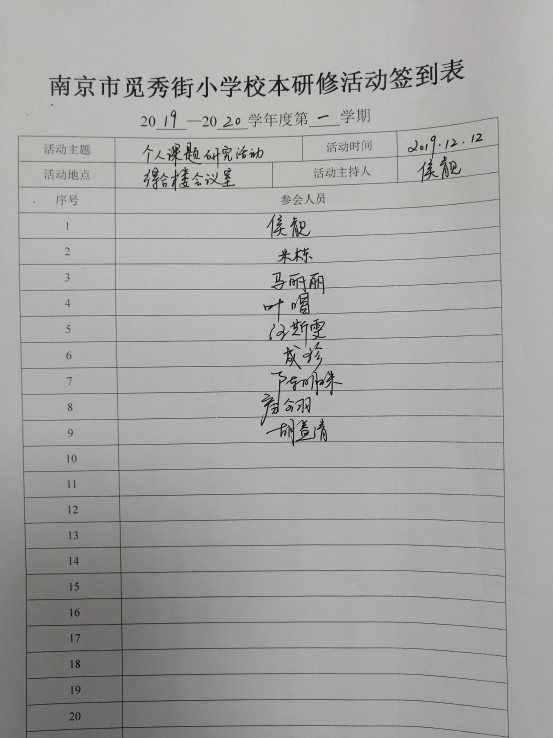 南京市觅秀街小学校本研修活动签到表
2019—2020学年度第一学期
活动主题 个人课题研究活动 活动时间 2019.12.12
活动地点 综合楼会议室 活动主持人 侯靓
序号 参会人员
1 侯靓
2 朱栋
3 马丽丽
4
5 汪斯雯
6 成珍
7 陈明珠
8
9 胡益清
10
11
12
13
14
15
16
17
18
19
20